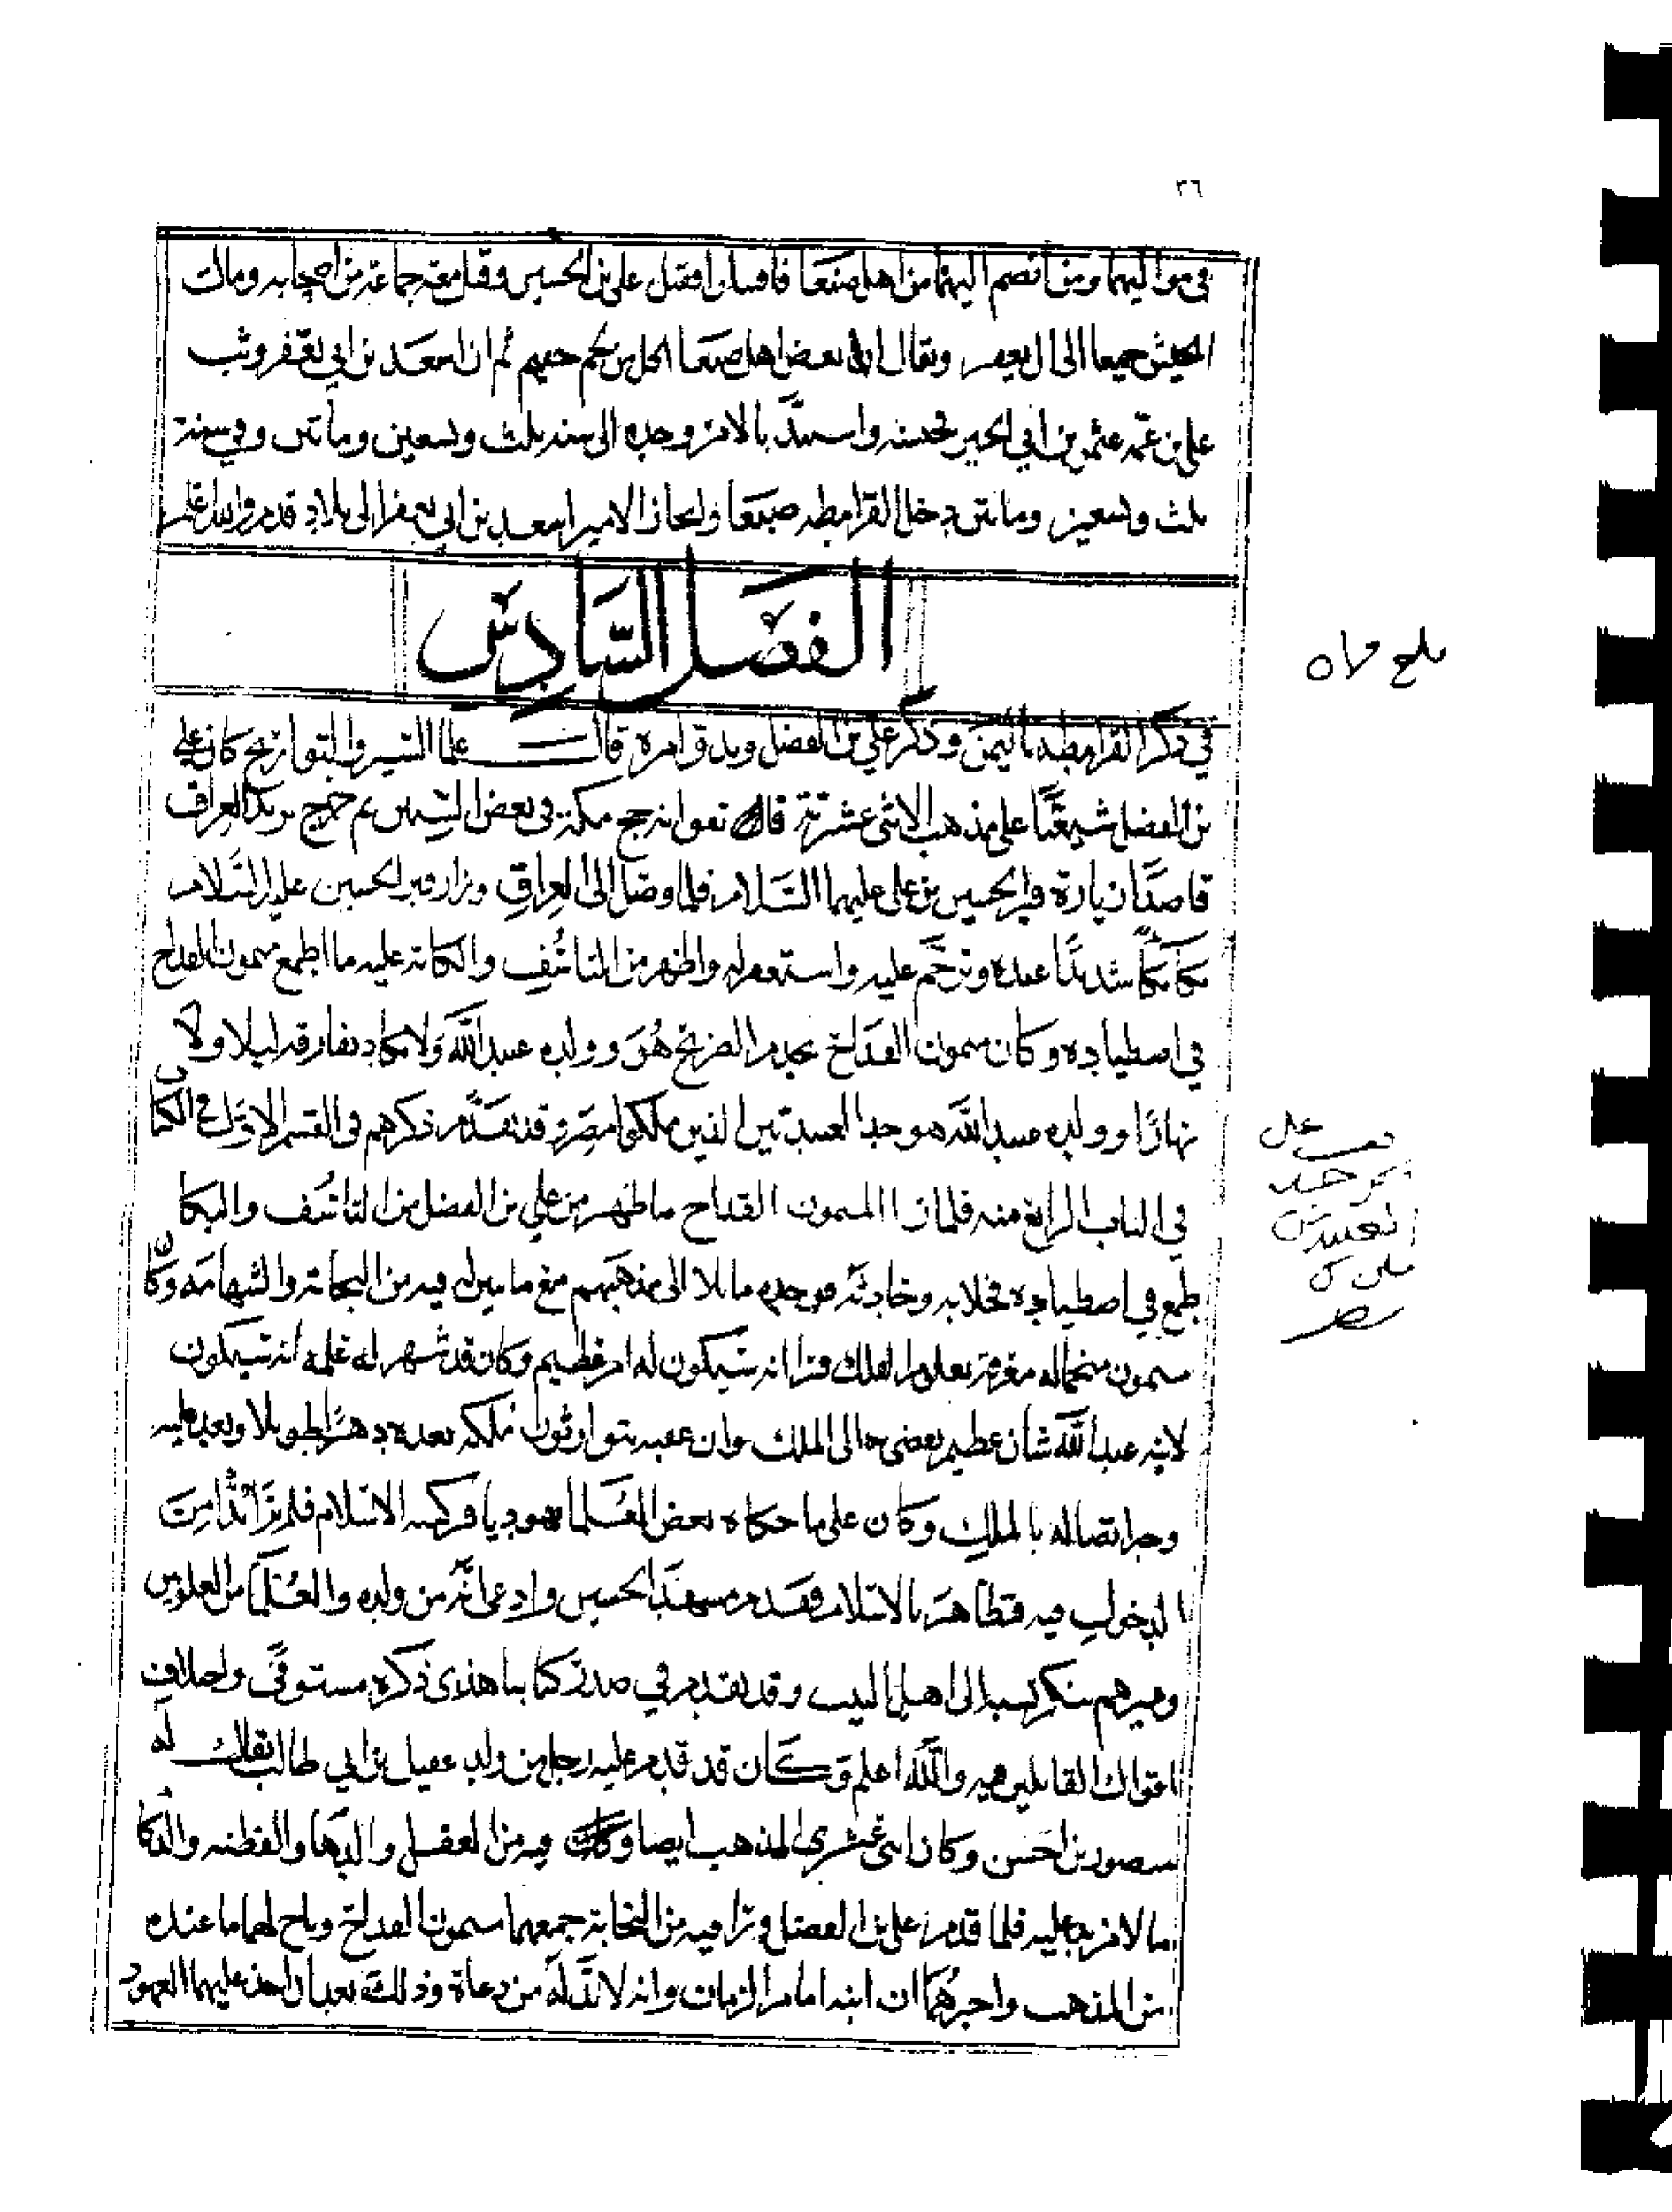 ٣٦
في مواليهما ومن انضم اليهما من اهل صنعا فاقتتلوا فقتل علي بن الحسين وقتل معه جماعة من اصحابه ومالت
الجيش جميعا الى ال يعفر ويقال ان بعض اهل صنعا ثم ان اسعد بن ابي يعفر وثب
على بن عمه عثمن بن ابي الخير فحبسه واستبدّ بالامر وحده الى سنه ثلث وتسعين ومأتين وفي سنة
ثلث وتسعين ومأتين دخل القرامطه صنعا وانحاز الامير اسعد بن ابي يعفر الى بلاد قدم والله اعلم
الفصل السادس
في ذكر القرامطه باليمن وذكر علي بن الفضل وبدو امره قالت علما السير والتواريخ كان علي
بن الفضل شيعيًّا على مذهب الاثنى عشرية قالوا انه حج مكة في بعض السنين ثم خرج يريد العراق
قاصدًا زيارة قبر الحسين بن علي عليهما السلام فلما وصل الى العراق وزار قبر الحسين عليه السلام
بكا بكاً شديدًا عنده وترحّم عليه واستغفر له واظهر من التأسف والكابه عليه ما اطمع ميمون القداح
في اصطياده وكان ميمون القداح يخدم الضريح هو وولده عبدالله ولا يكاد يفارقه ليلا ولا
نهارًا وولده عبدالله هو جد العبيديين الذين ملكوا مصر وقد تقدّم ذكرهم في القسم الاول في الكتاب
في الباب الرابع منه فلما را الميمون القداح ما ظهر من علي بن الفضل من التأسف والبكا
طمع في اصطياده فخلا به وحادثه فوجده مائلا الى مذهبهم مع ما تبين له فيه من النجابة والشهامه وكان
ميمون منجما له معرفة بعلم الفلك فرا انه سيكون له امر عظيم وكان قد شهر له علمه انه سيكون
لابنه عبدالله شان عظيم يفضي به الى الملك وان عقبه يتوارثون ملكه بعده دهرًا طويلا
وكان على ما حكاه بعض العلما يهوديا فلم بدًّا من
الدخول فيه فتظاهر بالاسلام وخدم مشهد الحسين وادعى انه من ولده والعلما من العلويين
وغيرهم ينكر نسبه الى اهل البيت وقد تقدم في صدر كتابنا هذا ذكره مستوفًى واختلاف
اقوال القائلين فيه والله اعلم وكان قد قدم عليه رجل من ولد عقيل بن ابي طالب يقال له
منصور بن الحسن وكان اثني عشري المذهب ايضا وكان فيه من العقل والدها والفطنه والذكا
ما لا مزيد عليه فلما قدم علي بن الفضل ورا فيه من النجابة جمعهما ميمون القداح وباح لهما ما عنده
من المذهب واخبرهما ان ابنه امام الزمان وانه لا بدّ له من دعاة وذلك بعد ان اخذ عليهما العهود